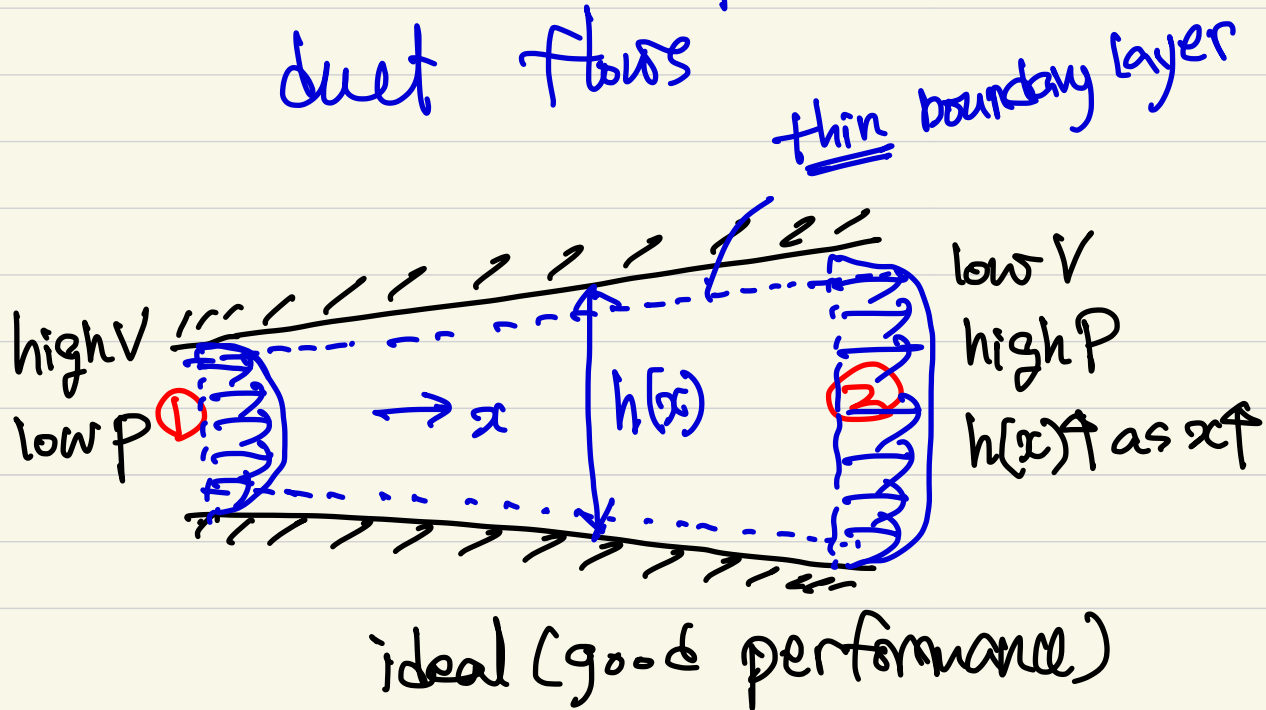 duct flows
thin boundary layer
high V
low P
①
x
h(x)
②
low V
high P
h(x)↑ as x↑
ideal (good performance)